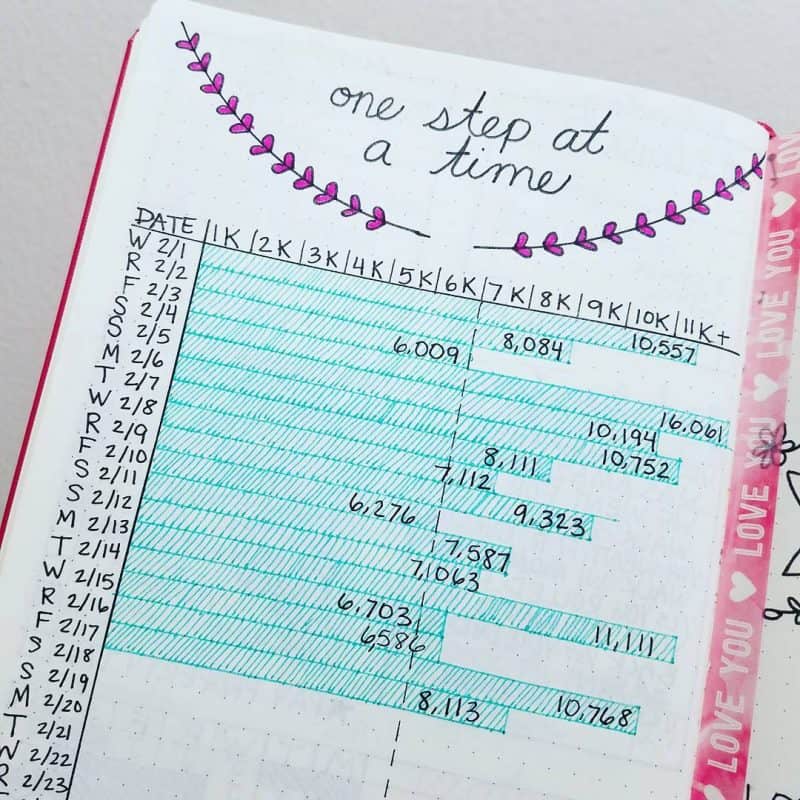 one step at
a time
DATE 1K 2K 3K 4K 5K 6K 7K 8K 9K 10K 11K+
W 2/1
R 2/2
F 2/3
S 2/4
S 2/5
M 2/6
T 2/7
W 2/8
R 2/9
F 2/10
S 2/11
S 2/12
M 2/13
T 2/14
W 2/15
R 2/16
F 2/17
S 2/18
S 2/19
M 2/20
T 2/21
W 2/22
R 2/23
10,557
8,084
6,009
16,061
10,194
10,752
8,111
7,112
9,323
6,276
7,587
7,1063
11,111
6,703
6,586
10,768
8,113
LOVE YOU ♥ LOVE YOU ♥ LOVE YOU ♥ LOV